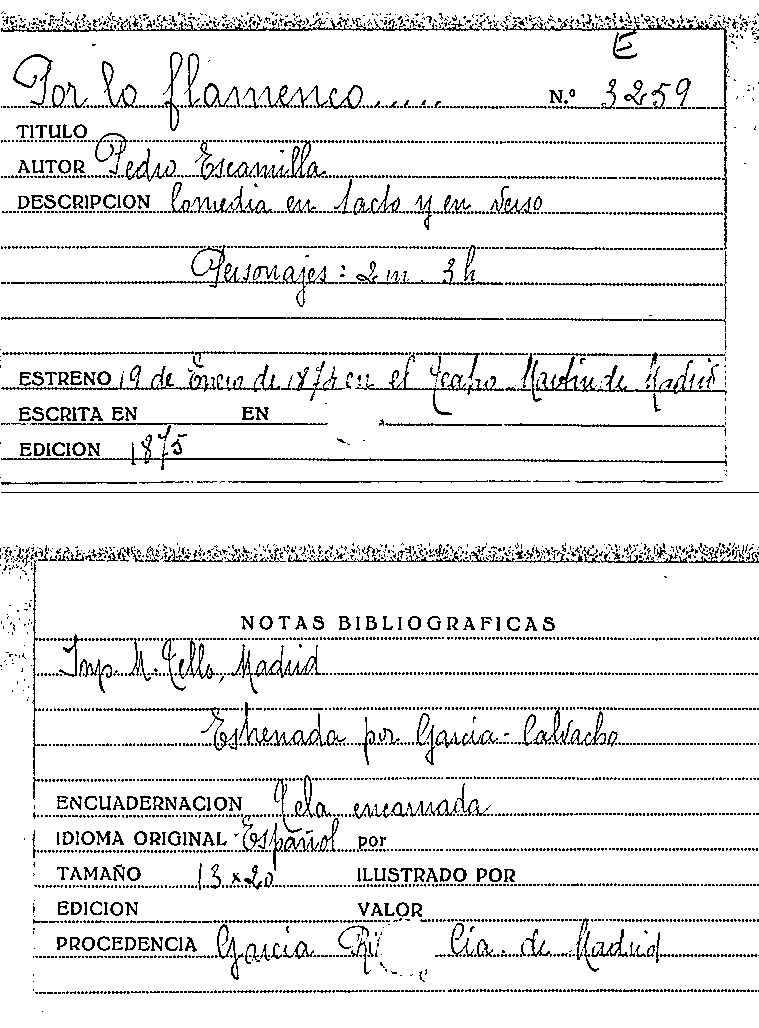 E
Por lo flamenco..... N.º 3259
TITULO
AUTOR Pedro Escamilla
DESCRIPCION Comedia en 1 acto y en verso
Personajes: 2 m. 3 h
ESTRENO 19 de Enero de 1874 en el Teatro Martín de Madrid
ESCRITA EN EN
EDICION 1875
NOTAS BIBLIOGRAFICAS
Imp. M. Tello, Madrid
Estrenada por García-Calvacho
ENCUADERNACION Tela encarnada
IDIOMA ORIGINAL Español por
TAMAÑO 13 x 20 ILUSTRADO POR
EDICION VALOR
PROCEDENCIA García Cía. de Madrid